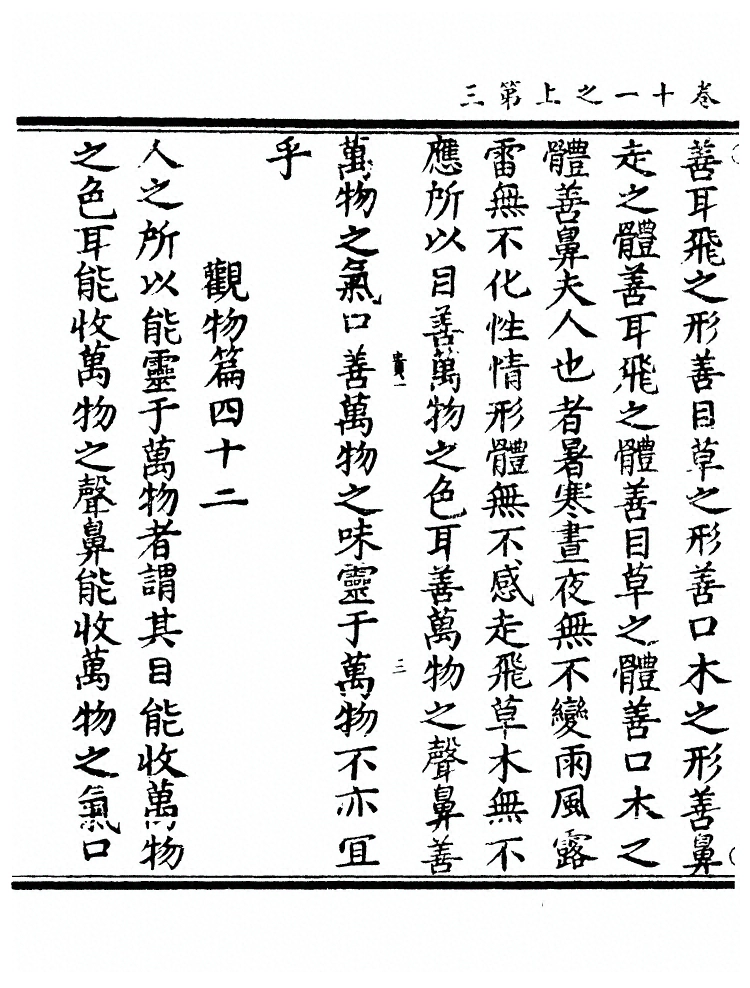 卷十一之上第三
善耳飛之形善目草之形善口木之形善鼻
走之體善耳飛之體善目草之體善口木之
體善鼻夫人也者暑寒晝夜無不變雨風露
雷無不化性情形體無不感走飛草木無不
應所以目善萬物之色耳善萬物之聲鼻善
貴一
三
萬物之氣口善萬物之味靈于萬物不亦宜
乎
觀物篇四十二
人之所以能靈于萬物者謂其目能收萬物
之色耳能收萬物之聲鼻能收萬物之氣口